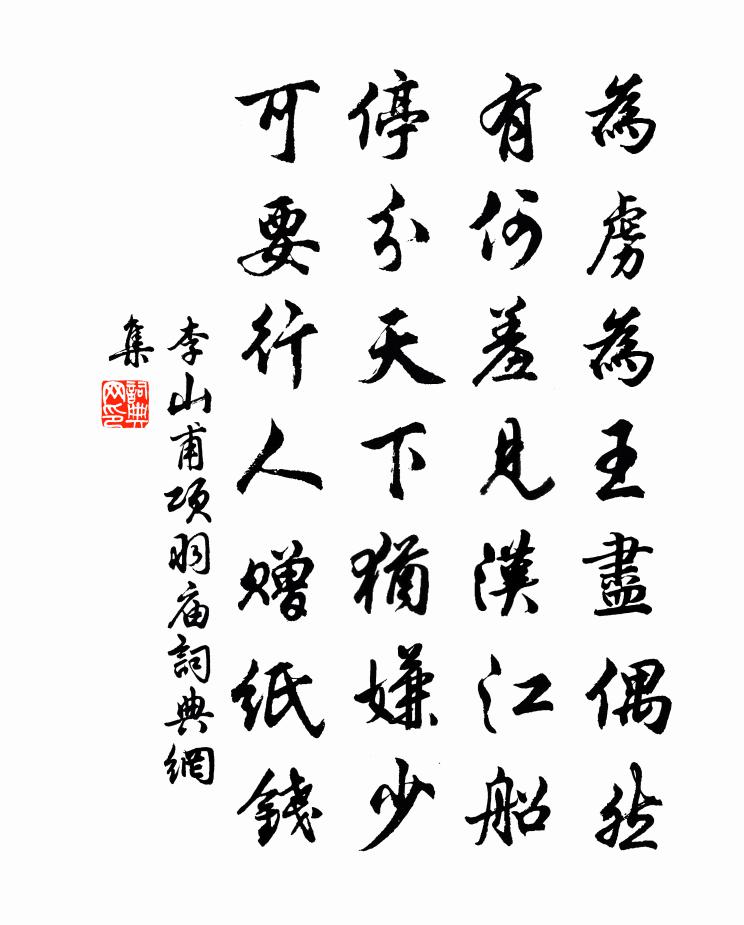 為虜為王盡偶然
有何羞見漢江船
停分天下猶嫌少
可要行人贈紙錢
李山甫項羽庙詞典網
集
詞典网印